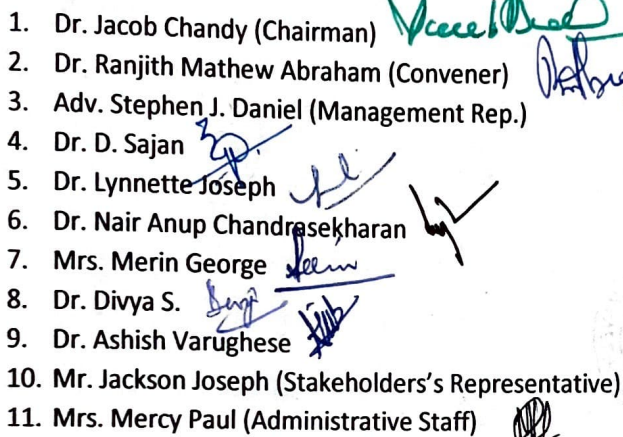 1. Dr. Jacob Chandy (Chairman)
2. Dr. Ranjith Mathew Abraham (Convener)
3. Adv. Stephen J. Daniel (Management Rep.)
4. Dr. D. Sajan
5. Dr. Lynnette Joseph
6. Dr. Nair Anup Chandrasekharan
7. Mrs. Merin George
8. Dr. Divya S.
9. Dr. Ashish Varughese
10. Mr. Jackson Joseph (Stakeholders's Representative)
11. Mrs. Mercy Paul (Administrative Staff)